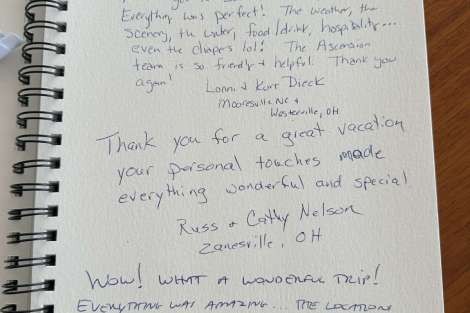 Everything was perfect! The weather, the
scenery, the water, food/drink, hospitality...
even the diapers lol! The Ascension
team is so friendly & helpful. Thank you
again!
Lonni & Kurt Dieck
Mooresville, NC &
Westerville, OH
Thank you for a great vacation
your personal touches made
everything wonderful and special
Russ & Cathy Nelson
Zanesville, OH
WOW! WHAT A WONDERFUL TRIP!
EVERYTHING WAS AMAZING... THE LOCATION